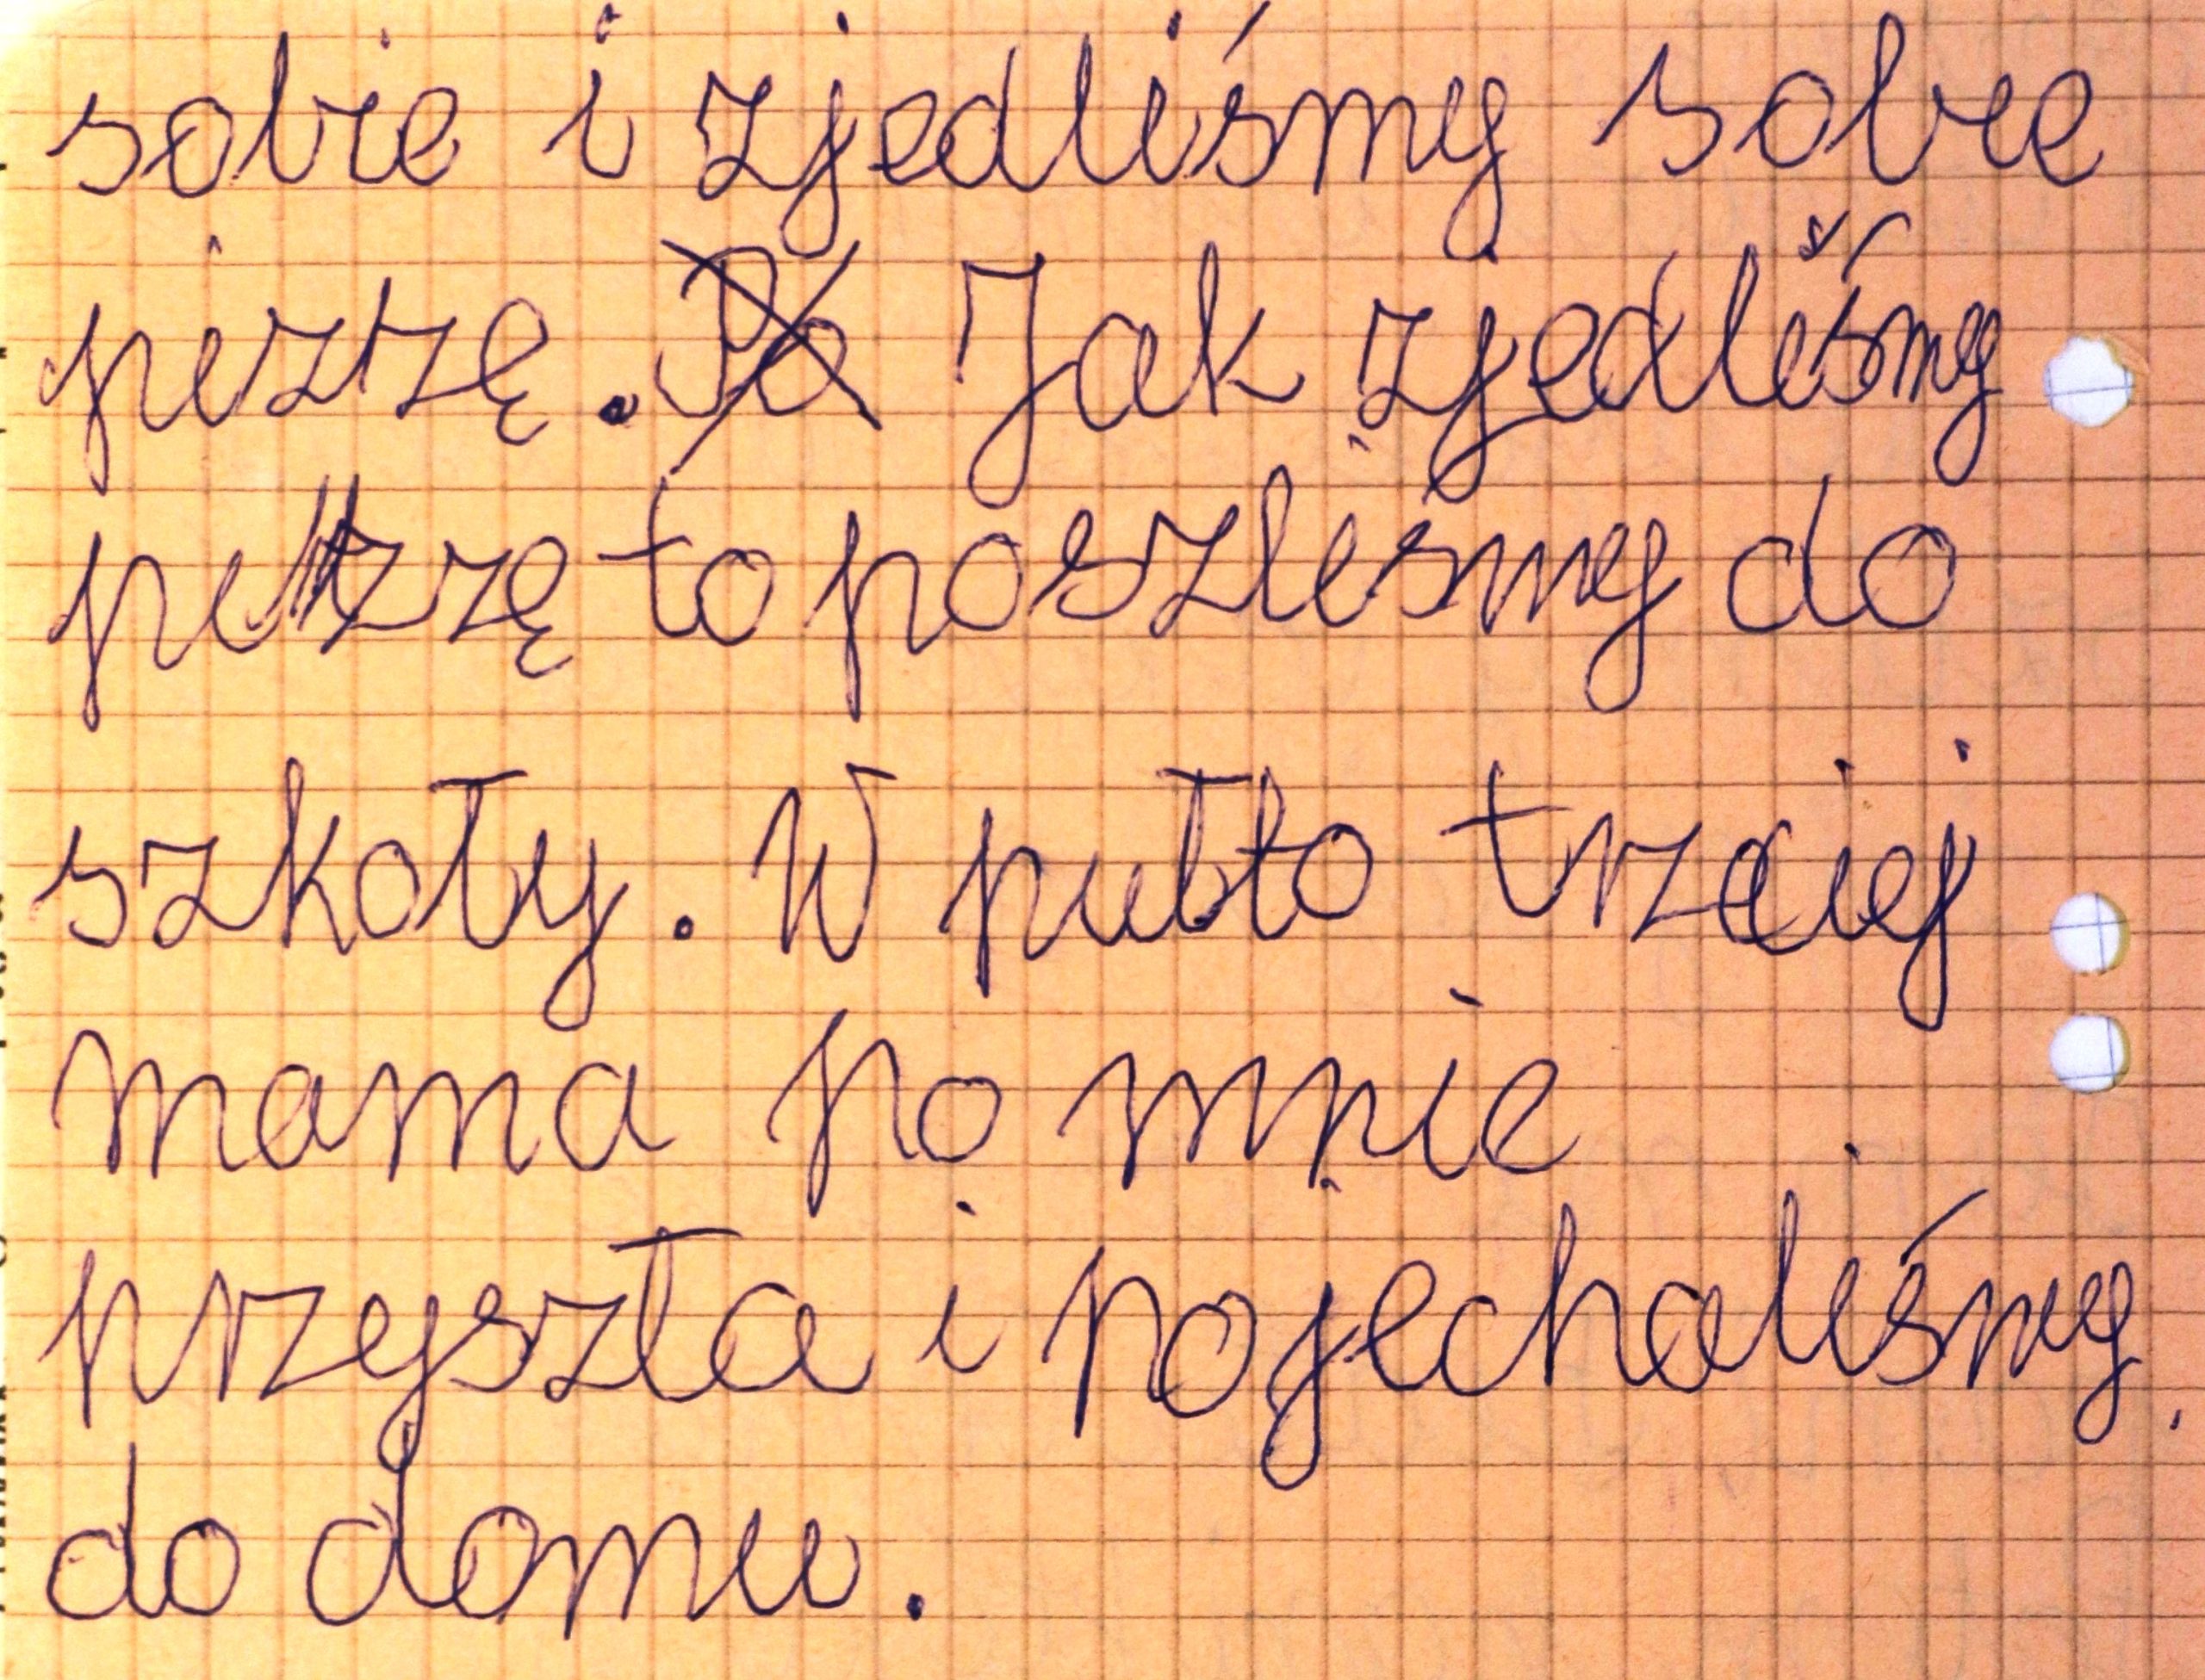 sobie i zjedliśmy sobie
pizzę. Jak zjedliśmy
pizzę to poszlismy do
szkoły. W pułto trzeciej
mama po mnie
przyszła i pojechaliśmy
do domu.